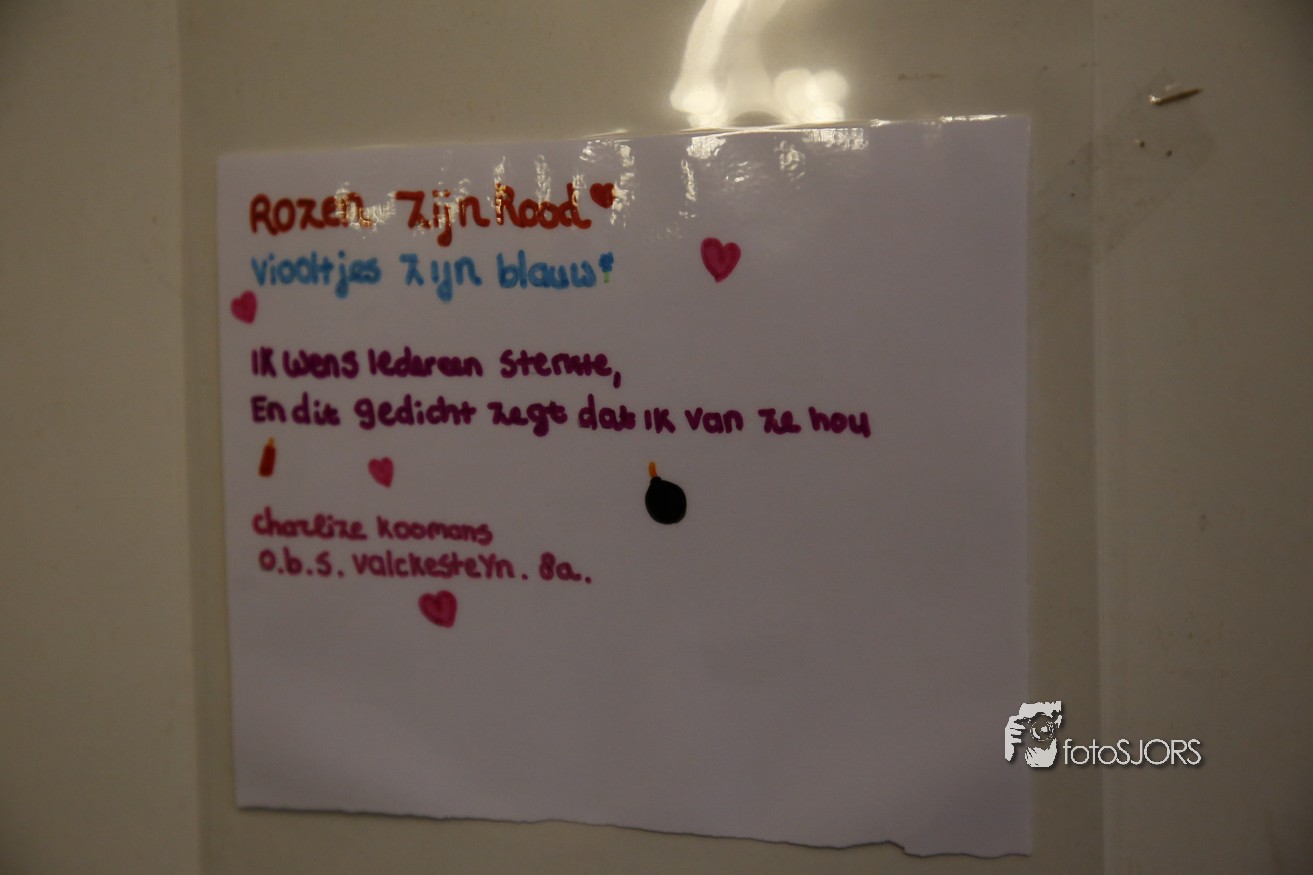 Rozen zijn Rood
viooltjes zijn blauw
Ik wens Iedereen sterkte,
En dit gedicht zegt dat ik van ze hou
charlize koomans
o.b.s. valckesteyn. 8a.
fotoSJORS